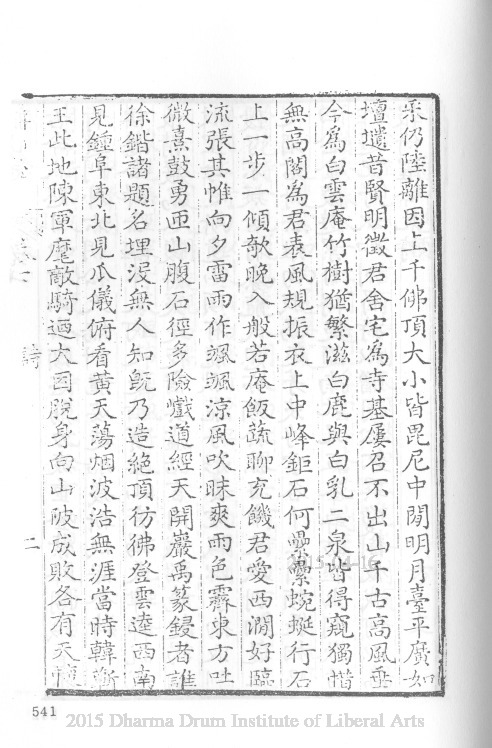 采仍陸離因上千佛頂大小皆毘尼中閒明月臺平廣如
壇墠昔賢明徵君舍宅為寺基屢召不出山千古高風垂
今為白雲庵竹樹猶繁滋白鹿與白乳二泉皆得窺獨惜
無高閣為君表風規振衣上中峰鉅石何纍纍蜿蜒行石
上一步一傾欹晚入般若庵飯蔬聊充饑君愛西澗好臨
流張其帷向夕雷雨作颯颯涼風吹昧爽雨色霽東方吐
微熹鼓勇匝山腹石徑多險巇道經天開巖禹篆鋟者誰
徐鍇諸題名埋沒無人知旣乃造絕頂彷彿登雲逵西南
見鍾阜東北見瓜儀俯看黃天蕩烟波浩無涯當時韓蘄
王此地陳軍麾敵騎迺大困脫身向山陂成敗各有天
詩
二
2015-04-16
541
2015 Dharma Drum Institute of Liberal Arts